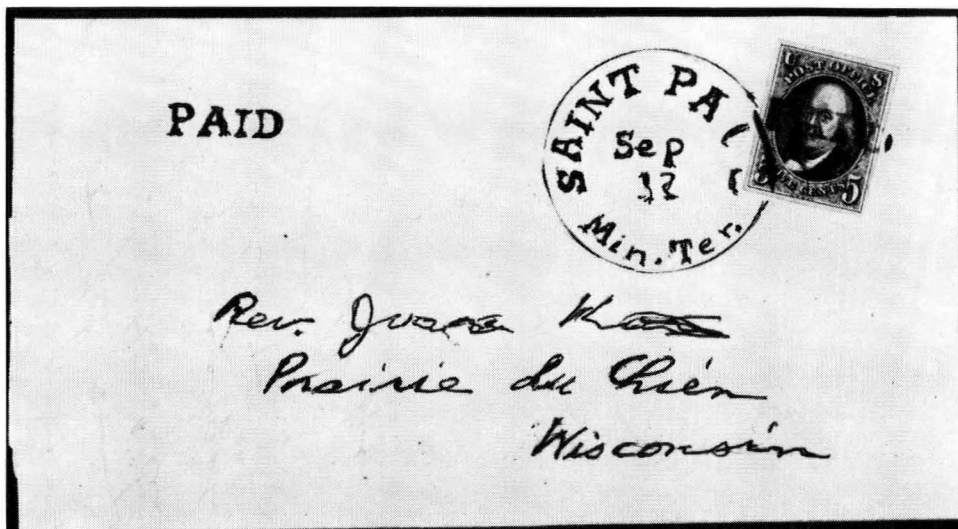 PAID
SAINT PA
Sep
12
Min. Ter.
U S
POST OFFICE
FIVE CENTS
5
Rev.
Prairie du Chien
Wisconsin